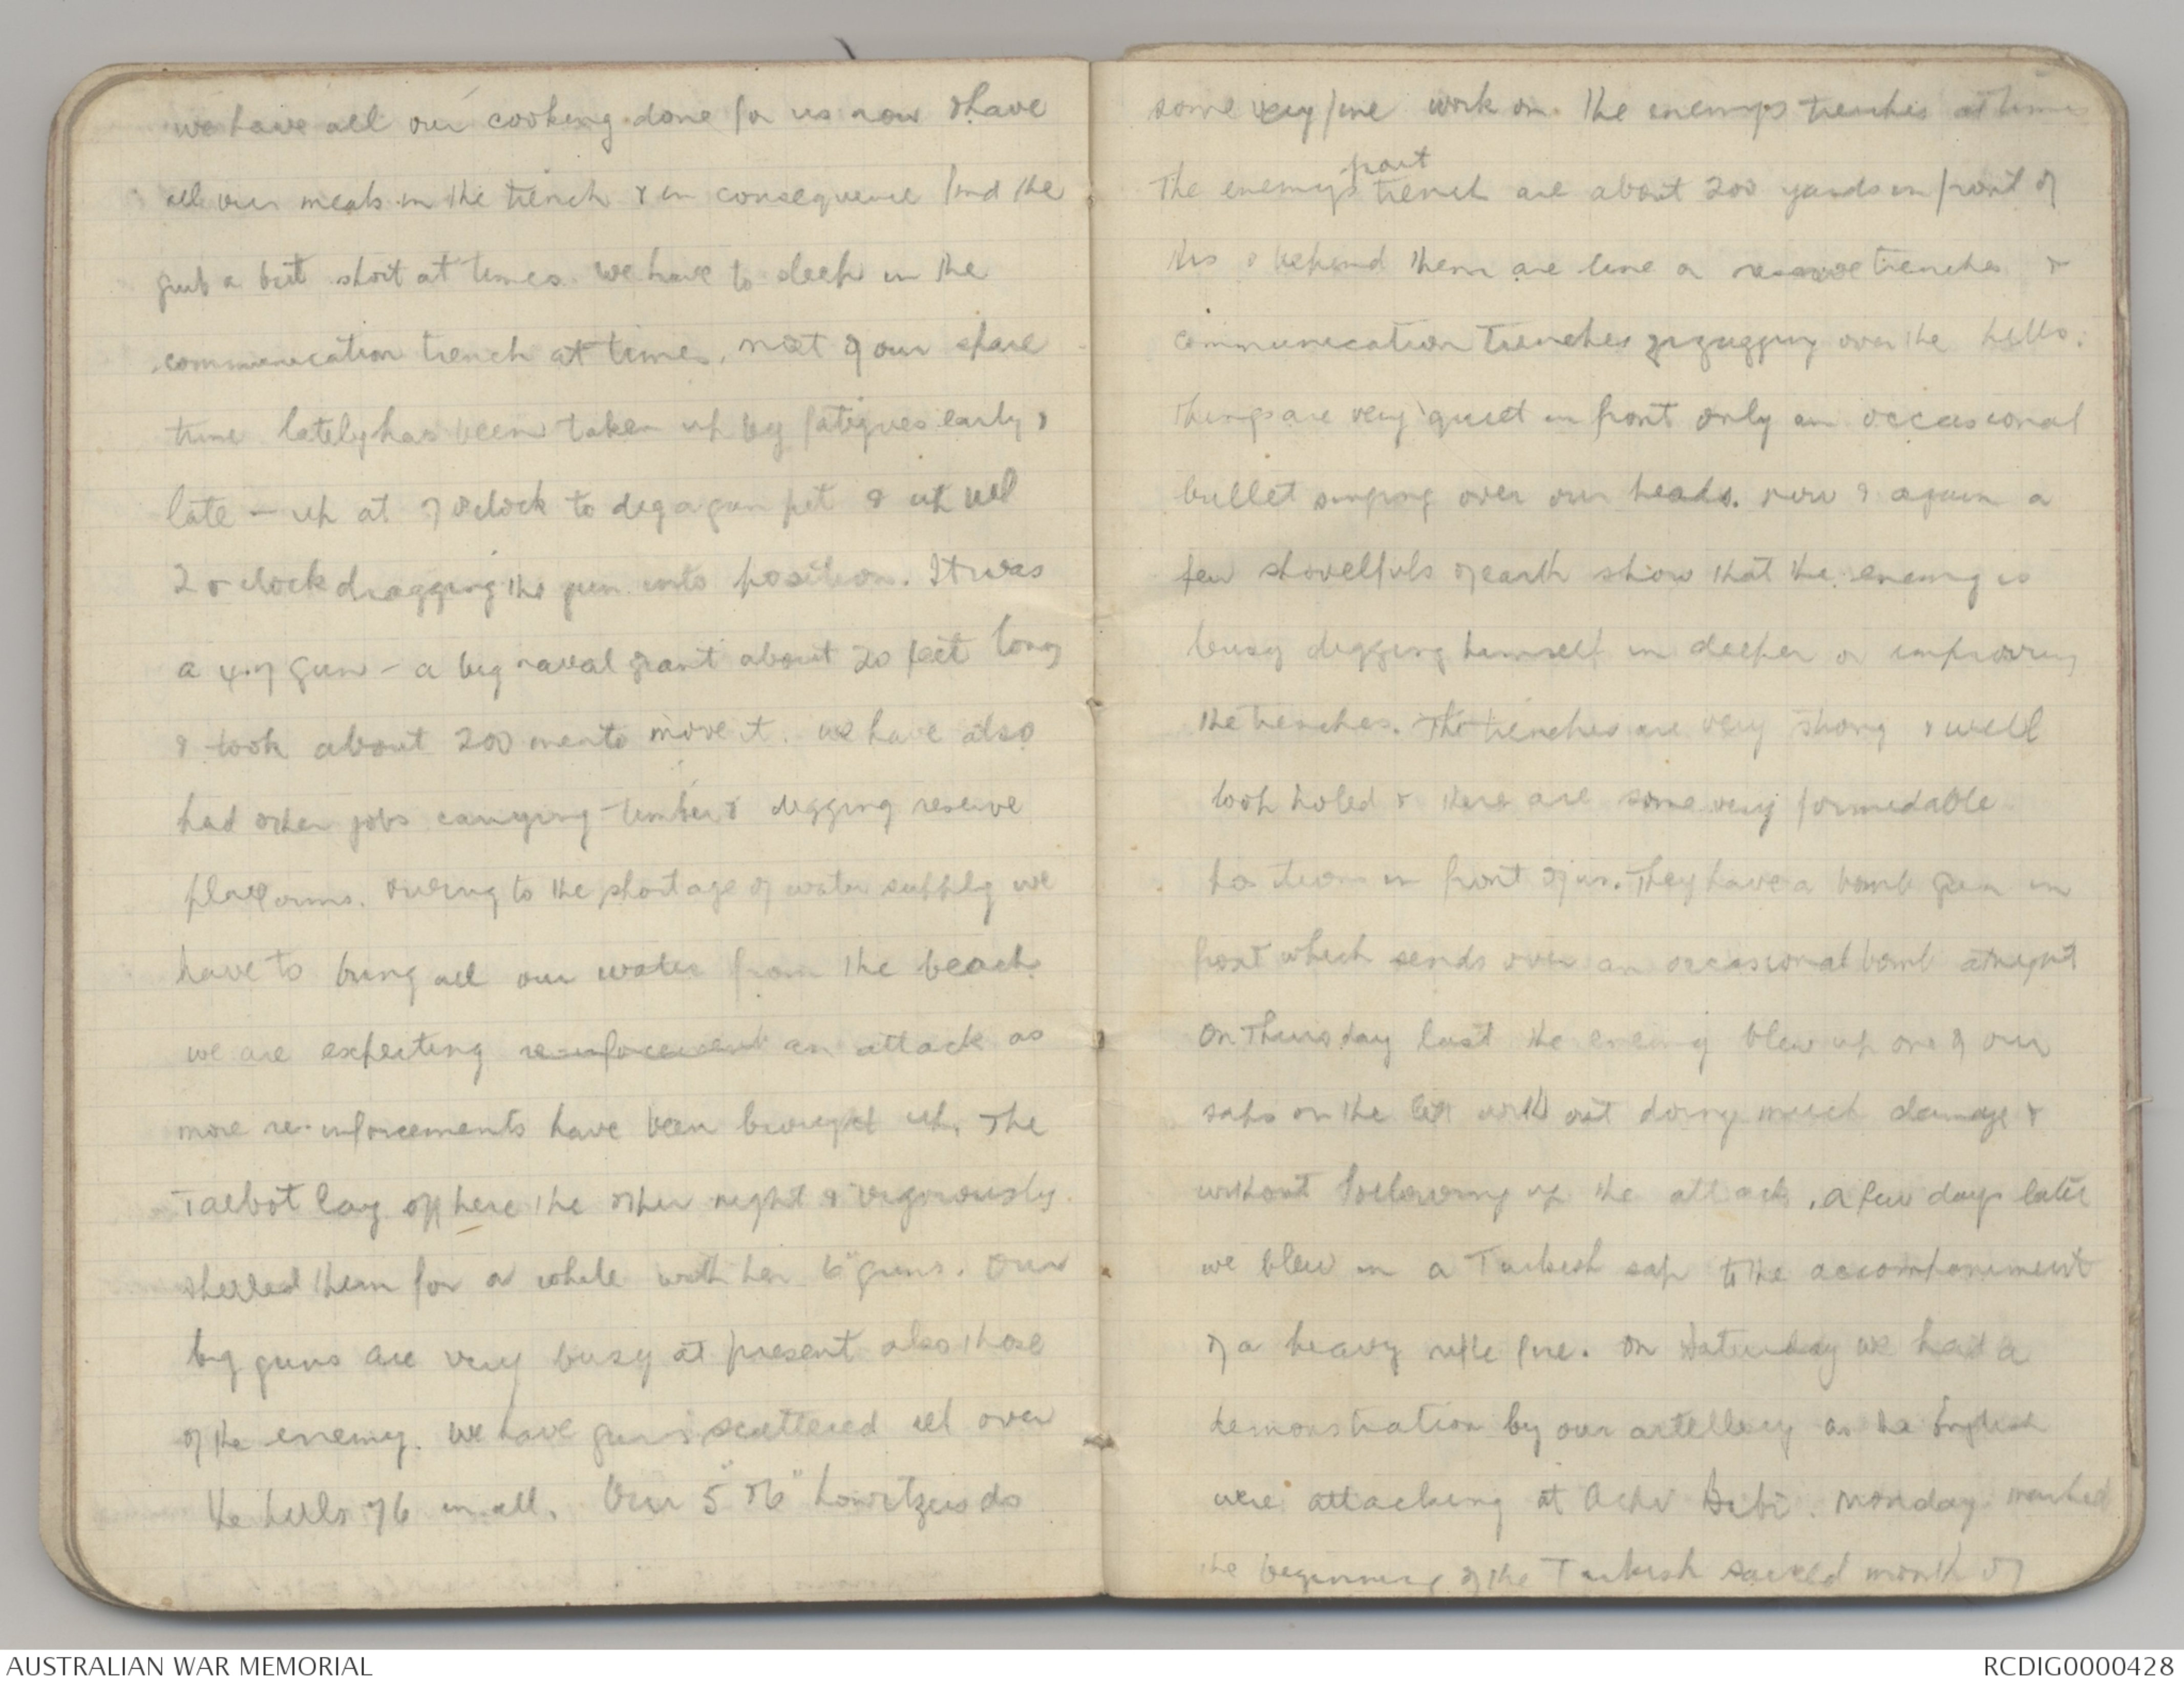 we have all our cooking done for us now & have
all our meals in the trench & in consequence find the
grub a bit short at times. we have to sleep in the
communication trench at times. most of our spare
time lately has been taken up by fatigues early &
late - up at 7 oclock to dig a gun pit & up till
2 o clock dragging the gun into position. It was
a 4.7 gun - a big naval giant about 20 feet long
& took about 200 men to move it. we have also
had other jobs carrying timber & digging reserve
platforms. owing to the shortage of water supply we
have to bring all our water from the beach.
we are expecting reinforcement an attack as
more re-inforcements have been brought up. The
Talbot lay off here the other night & vigorously
shelled them for a while with her 6" guns. Our
big guns are very busy at present also those
of the enemy. we have guns scattered all over
the hills 76 in all. Our 5" & 6" howitzers do
some very fine work on the enemys trenches at times
part
The enemys trench are about 200 yards in front of
this & behind them are line a reserve trenches &
communication trenches zigzagging over the hills.
Things are very quiet in front only an occasional
bullet singing over our heads. now & again a
few shovelfuls of earth show that the enemy is
busy digging himself in deeper or improving
the trenches. The trenches are very strong & well
loop holed & there are some very formidable
positions in front of us. They have a bomb gun in
front which sends over an occasional bomb at night
On Thursday last the enemy blew up one of our
saps on the left with out doing much damage &
without following up the attack. a few days later
we blew in a Turkish sap to the accompaniment
of a heavy rifle fire. On Saturday we had a
demonstration by our artillery as the English
were attacking at Achi Bibi. Monday marked
the beginning of the Turkish sacred month of
AUSTRALIAN WAR MEMORIAL
RCDIG0000428